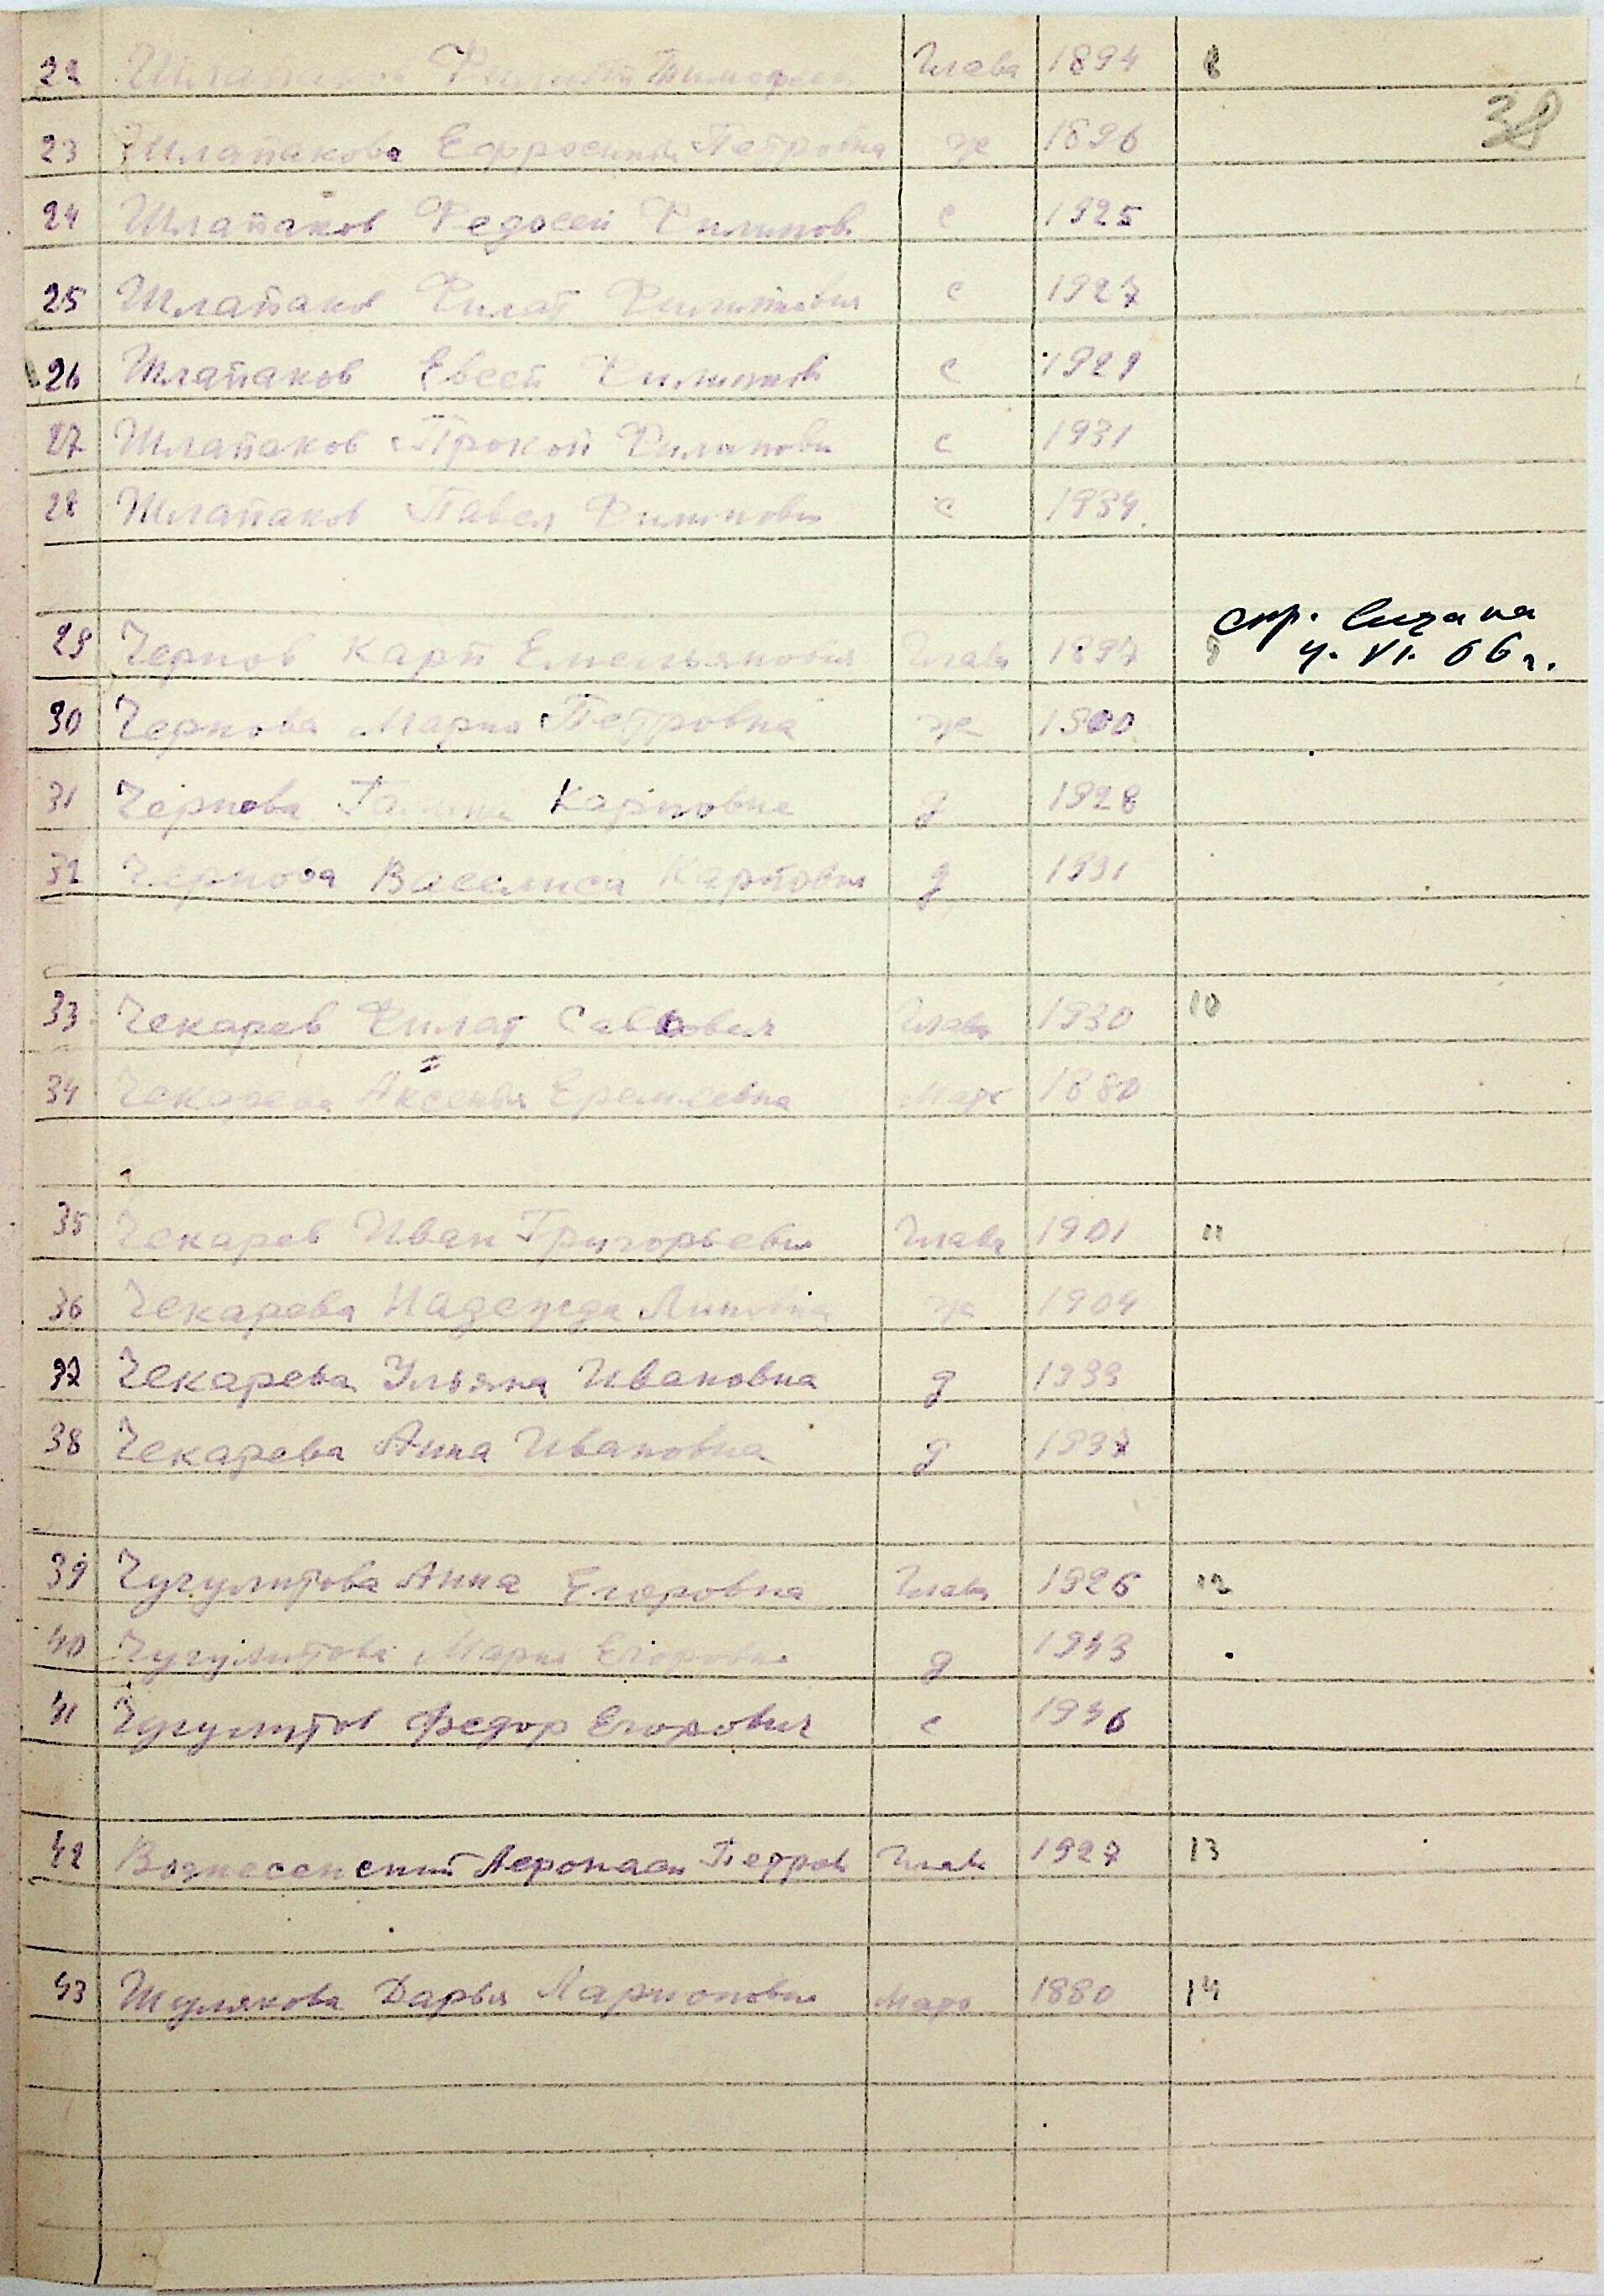 22 Филипп Тимофеев Глава 1894 8
38
23 Шлапакова Ефросинья Петровна ж 1896
24 Шлапаков Федосей Филипов с 1925
25 Шлапаков Филат Филиппович с 1927
26 Шлапаков Евсей Филиппов с 1929
27 Шлапаков Прокоп Филипович с 1931
28 Шлапаков Павел Филипович с 1934
спр. выдана
29 Чернов Карп Емельянович Глава 1897 9 4. VI. 66 г.
30 Чернова Мария Петровна ж 1900
31 Чернова Галина Карповна д 1928
32 Чернова Васелиса Карповна д 1931
33 Чекарев Филат Саввович Глава 1930 10
34 Чекарева Аксенья Еремеевна Мать 1880
35 Чекарев Иван Григорьевич Глава 1901 11
36 Чекарева Надежда ж 1904
37 Чекарева Ульяна Ивановна д 1933
38 Чекарева Анна Ивановна д 1937
39 Чугулитова Анна Егоровна Глава 1926 12
40 Чугулитова Мария Егоровна д 1943
41 Чугулитов Федор Егорович с 1946
42 Вознесенский Афонаси Петров Глава 1927 13
43 Шулякова Дарья Ларионовна Мать 1880 14